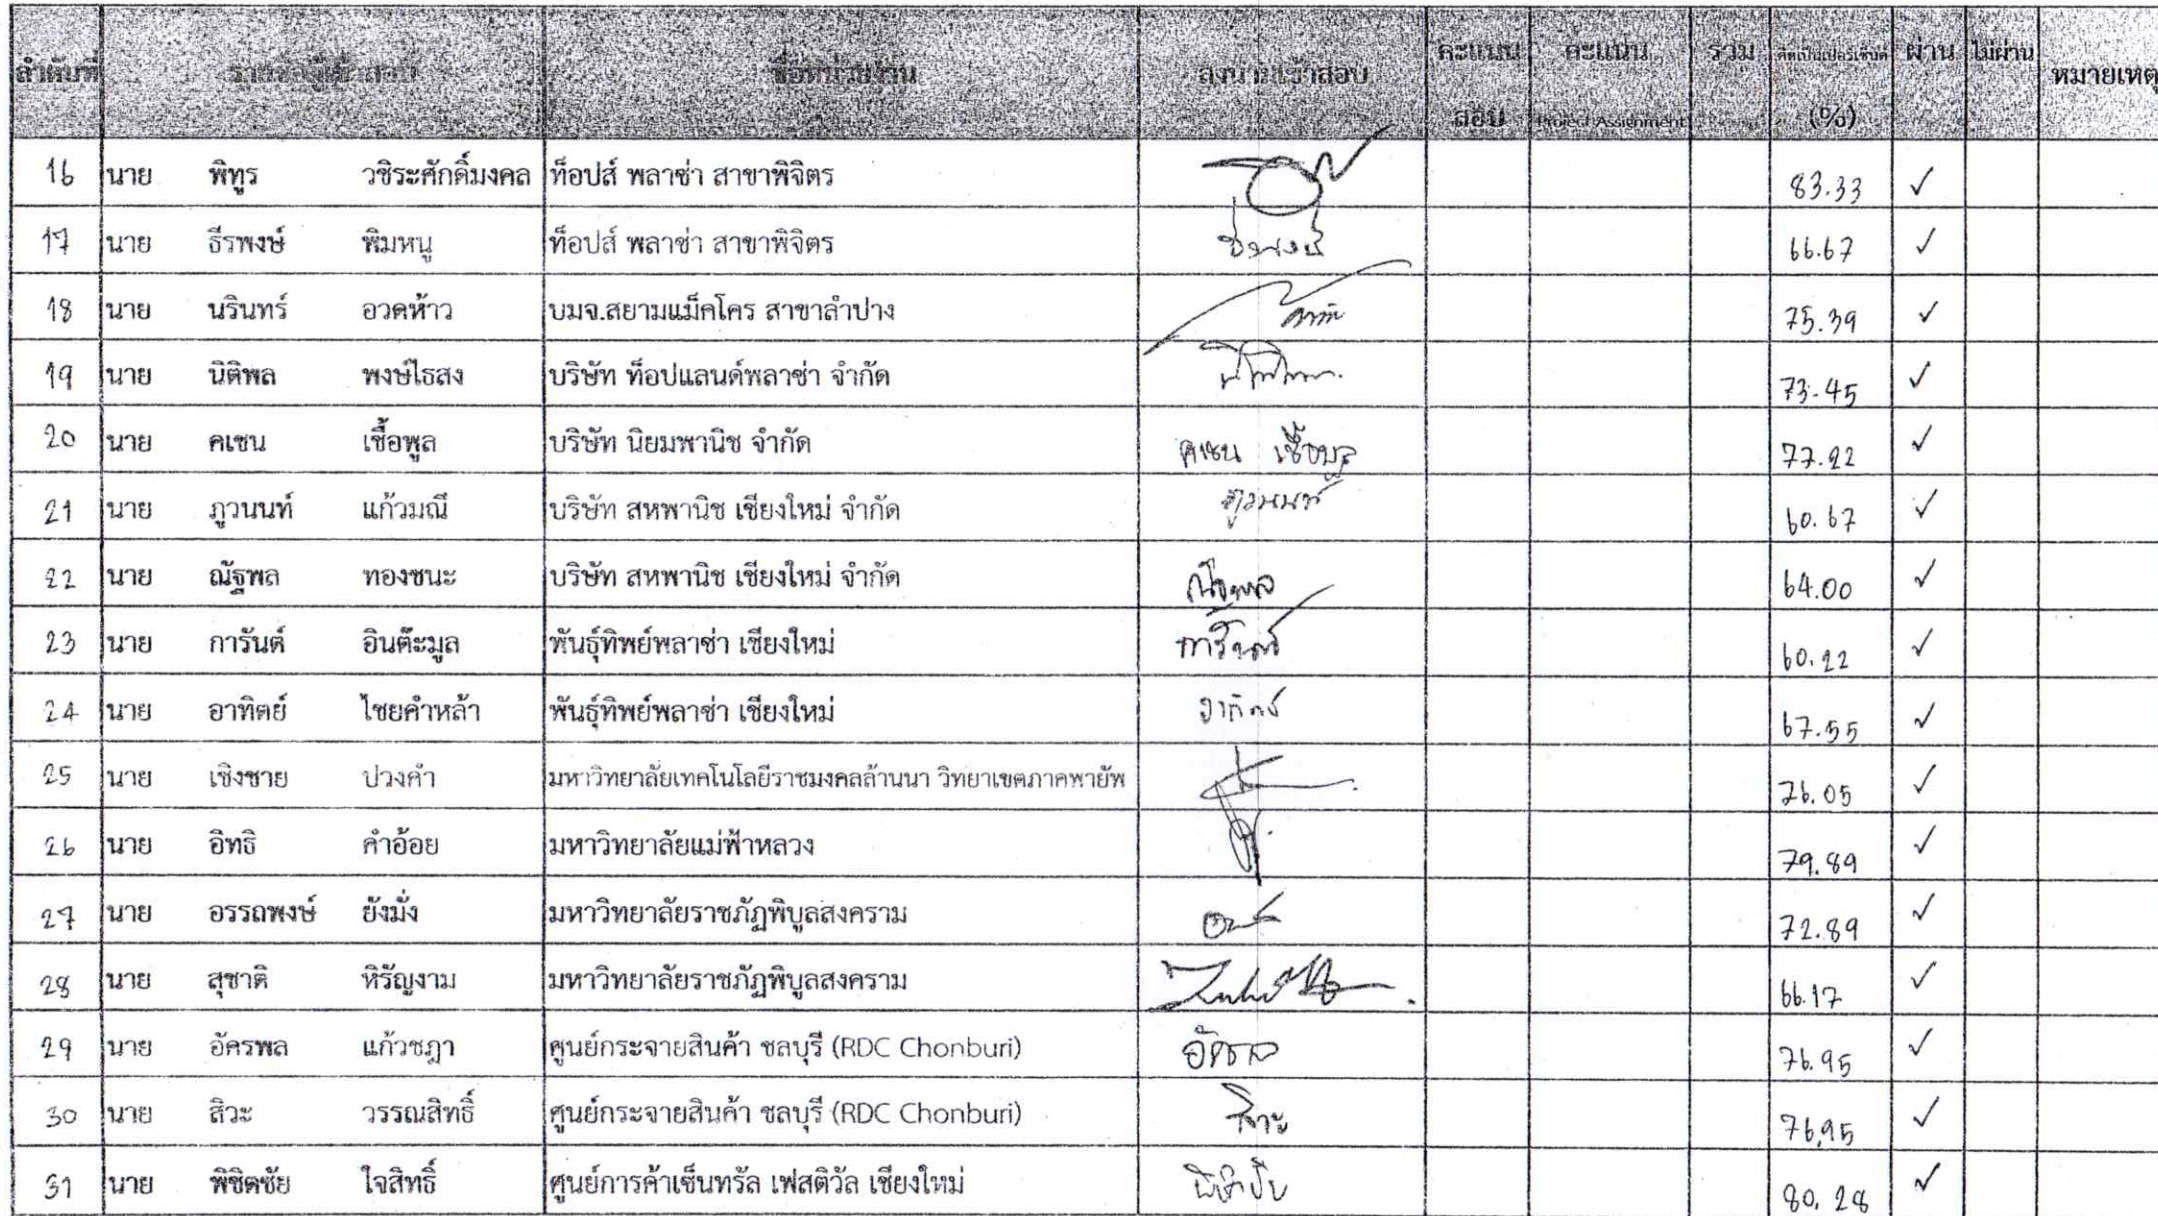 ลำดับที่ รายชื่อผู้เข้าสอบ ชื่อหน่วยงาน ลงนามเข้าสอบ คะแนน คะแนน รวม คิดเป็นเปอร์เซ็นต์ ผ่าน ไม่ผ่าน หมายเหตุ
สอบ Project Assignment (%)
16 นาย พิทูร วชิระศักดิ์มงคล ท็อปส์ พลาซ่า สาขาพิจิตร 83.33 ✓
17 นาย ธีรพงษ์ พิมหนู ท็อปส์ พลาซ่า สาขาพิจิตร ธีรพงษ์ 66.67 ✓
18 นาย นรินทร์ อวดห้าว บมจ.สยามแม็คโคร สาขาลำปาง 75.39 ✓
19 นาย นิติพล พงษ์ไธสง บริษัท ท็อปแลนด์พลาซ่า จำกัด 73.45 ✓
20 นาย คเชน เชื้อพูล บริษัท นิยมพานิช จำกัด คเชน เชื้อพูล 77.22 ✓
21 นาย ภูวนนท์ แก้วมณี บริษัท สหพานิช เชียงใหม่ จำกัด ภูวนนท์ 60.67 ✓
22 นาย ณัฐพล ทองชนะ บริษัท สหพานิช เชียงใหม่ จำกัด ณัฐพล 64.00 ✓
23 นาย การันต์ อินต๊ะมูล พันธุ์ทิพย์พลาซ่า เชียงใหม่ การันต์ 60.22 ✓
24 นาย อาทิตย์ ไชยคำหล้า พันธุ์ทิพย์พลาซ่า เชียงใหม่ อาทิตย์ 67.55 ✓
25 นาย เชิงชาย ปวงคำ มหาวิทยาลัยเทคโนโลยีราชมงคลล้านนา วิทยาเขตภาคพายัพ 76.05 ✓
26 นาย อิทธิ คำอ้อย มหาวิทยาลัยแม่ฟ้าหลวง 79.89 ✓
27 นาย อรรถพงษ์ ยังมั่ง มหาวิทยาลัยราชภัฏพิบูลสงคราม 72.89 ✓
28 นาย สุชาติ หิรัญงาม มหาวิทยาลัยราชภัฏพิบูลสงคราม 66.17 ✓
29 นาย อัครพล แก้วชฎา ศูนย์กระจายสินค้า ชลบุรี (RDC Chonburi) อัครพล 76.95 ✓
30 นาย สิวะ วรรณสิทธิ์ ศูนย์กระจายสินค้า ชลบุรี (RDC Chonburi) สิวะ 76.95 ✓
31 นาย พิชิตชัย ใจสิทธิ์ ศูนย์การค้าเซ็นทรัล เฟสติวัล เชียงใหม่ พิชิตชัย 80.28 ✓